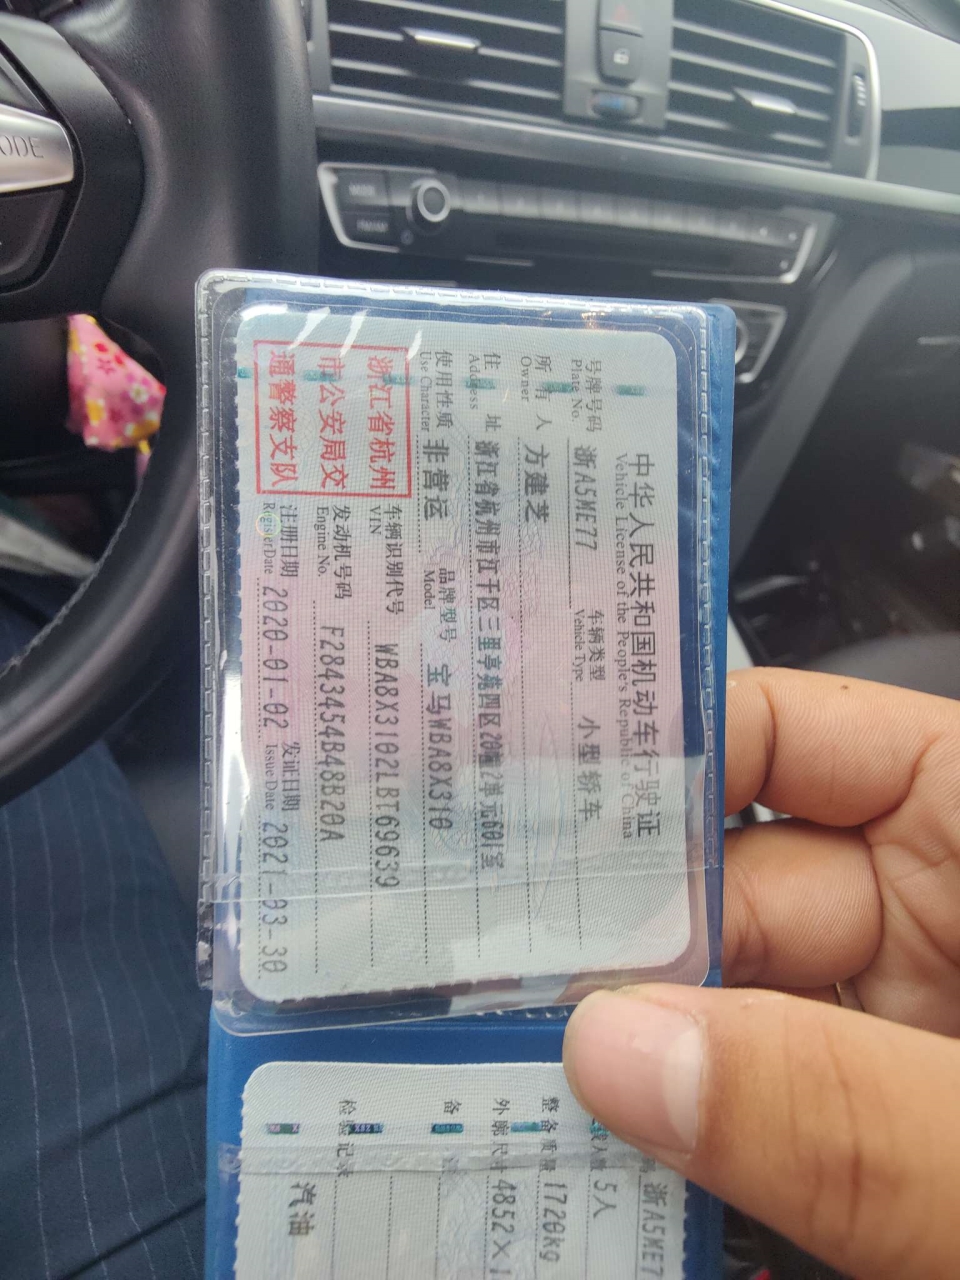 中华人民共和国机动车行驶证
Vehicle License of the People's Republic of China
号牌号码 浙A5ME77 车辆类型 小型轿车
Plate No. Vehicle Type
所有人 方建芝
Owner
住址 浙江省杭州市江干区三里亭苑四区20幢2单元601室
Address
使用性质 非营运 品牌型号 宝马WBA8X310
Use Character Model
浙江省杭州
市公安局交
通警察支队
车辆识别代号 WBA8X3102LBT69639
VIN
发动机号码 F2843454B48B20A
Engine No.
注册日期 2020-01-02 发证日期 2021-03-30
Register Date Issue Date
浙A5ME7
载人数 5人
整备质量 1720kg
外廓尺寸 4852×1
备
检验记录
汽油
ODE